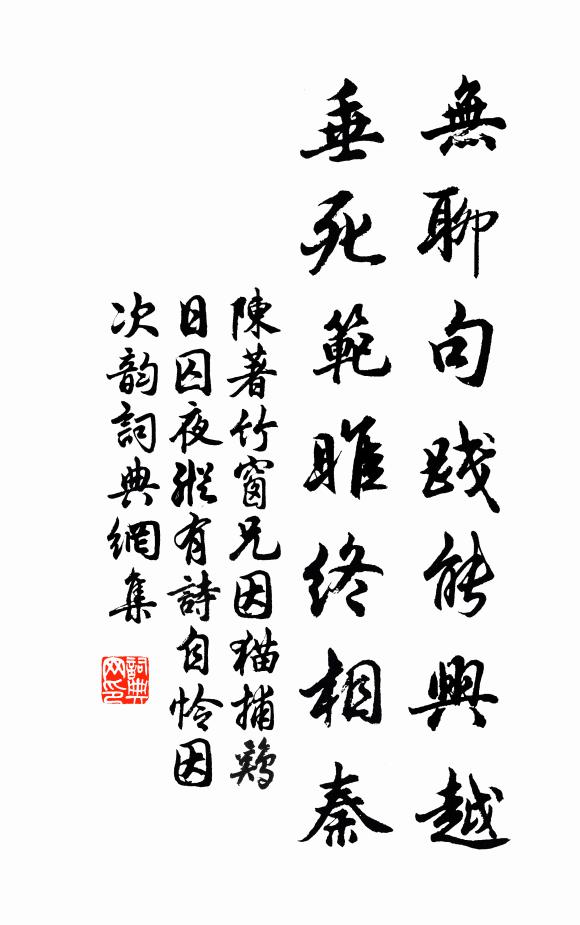 無聊句踐能興越
垂死範雎終相秦
陳著竹窗兄因猫捕鷄
日囚夜縱有詩自怜因
次韵詞典網集
詞典
网